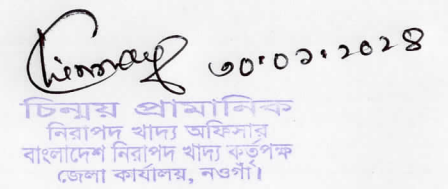 ৩০.০১.২০২৪
চিন্ময় প্রামানিক
নিরাপদ খাদ্য অফিসার
বাংলাদেশ নিরাপদ খাদ্য কর্তৃপক্ষ
জেলা কার্যালয়, নওগাঁ।